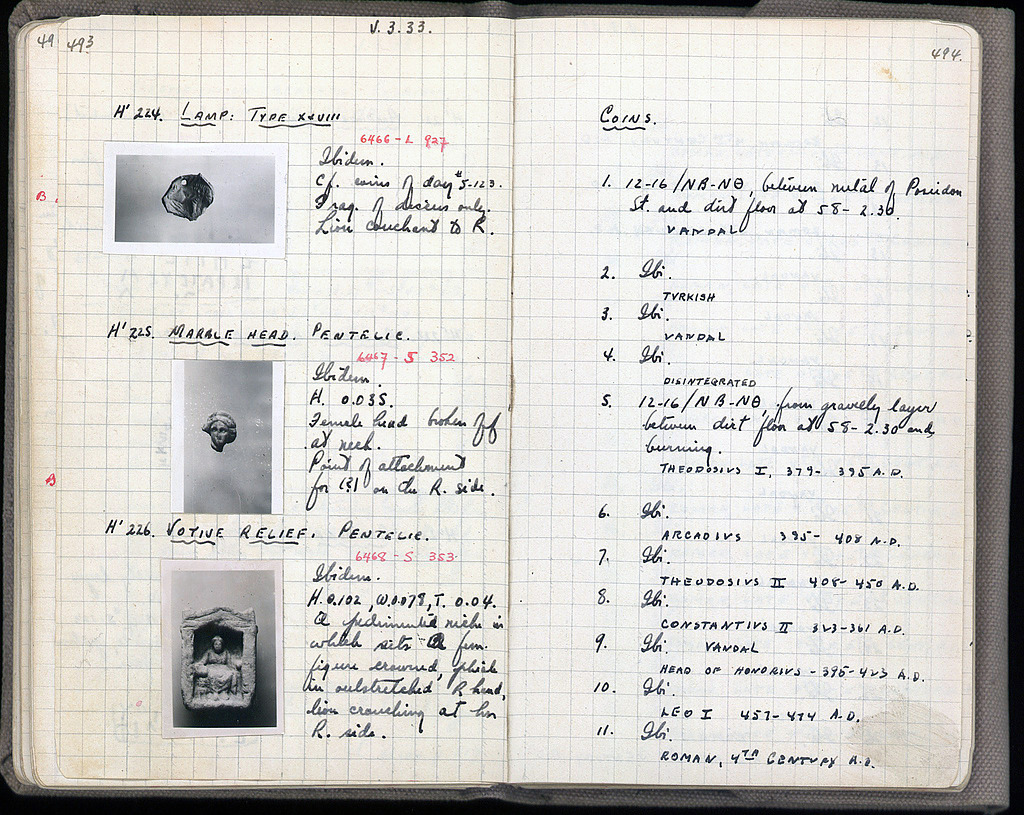 49
493
V. 3. 33.
H' 224. LAMP: TYPE XXVIII
6466 - L 927
Ibidem.
Cf. coins of day #5-123.
Frag. of discus only.
Lion couchant to R.
B.
H' 225. MARBLE HEAD. PENTELIC.
6467 - S 352
Ibidem.
H. 0.035.
Female head broken off
at neck.
Point of attachment
for (?) on the R. side.
B
H' 226. VOTIVE RELIEF. PENTELIC.
6468 - S 353.
Ibidem.
H. 0.102, W. 0.078, T. 0.04.
A pedimented niche in
which sits a fem.
figure crowned, phiale
in outstretched R hand,
lion crouching at her
R. side.
494.
COINS.
1. 12-16/NB-NΘ, between metal of Poseidon
St. and dirt floor at 58 - 2.30.
VANDAL
2. Ibi.
TVRKISH
3. Ibi.
VANDAL
4. Ibi.
DISINTEGRATED
5. 12-16/NB-NΘ, from gravelly layer
between dirt floor at 58 - 2.30 and
burning.
THEODOSIVS I, 379 - 395 A.D.
6. Ibi.
ARCADIVS 395 - 408 A.D.
7. Ibi.
THEODOSIVS II 408 - 450 A.D.
8. Ibi.
CONSTANTIVS II 323-361 A.D.
9. Ibi. VANDAL
HEAD OF HONORIVS - 395-423 A.D.
10. Ibi.
LEO I 457-474 A.D.
11. Ibi.
ROMAN, 4TH CENTVRY A.D.